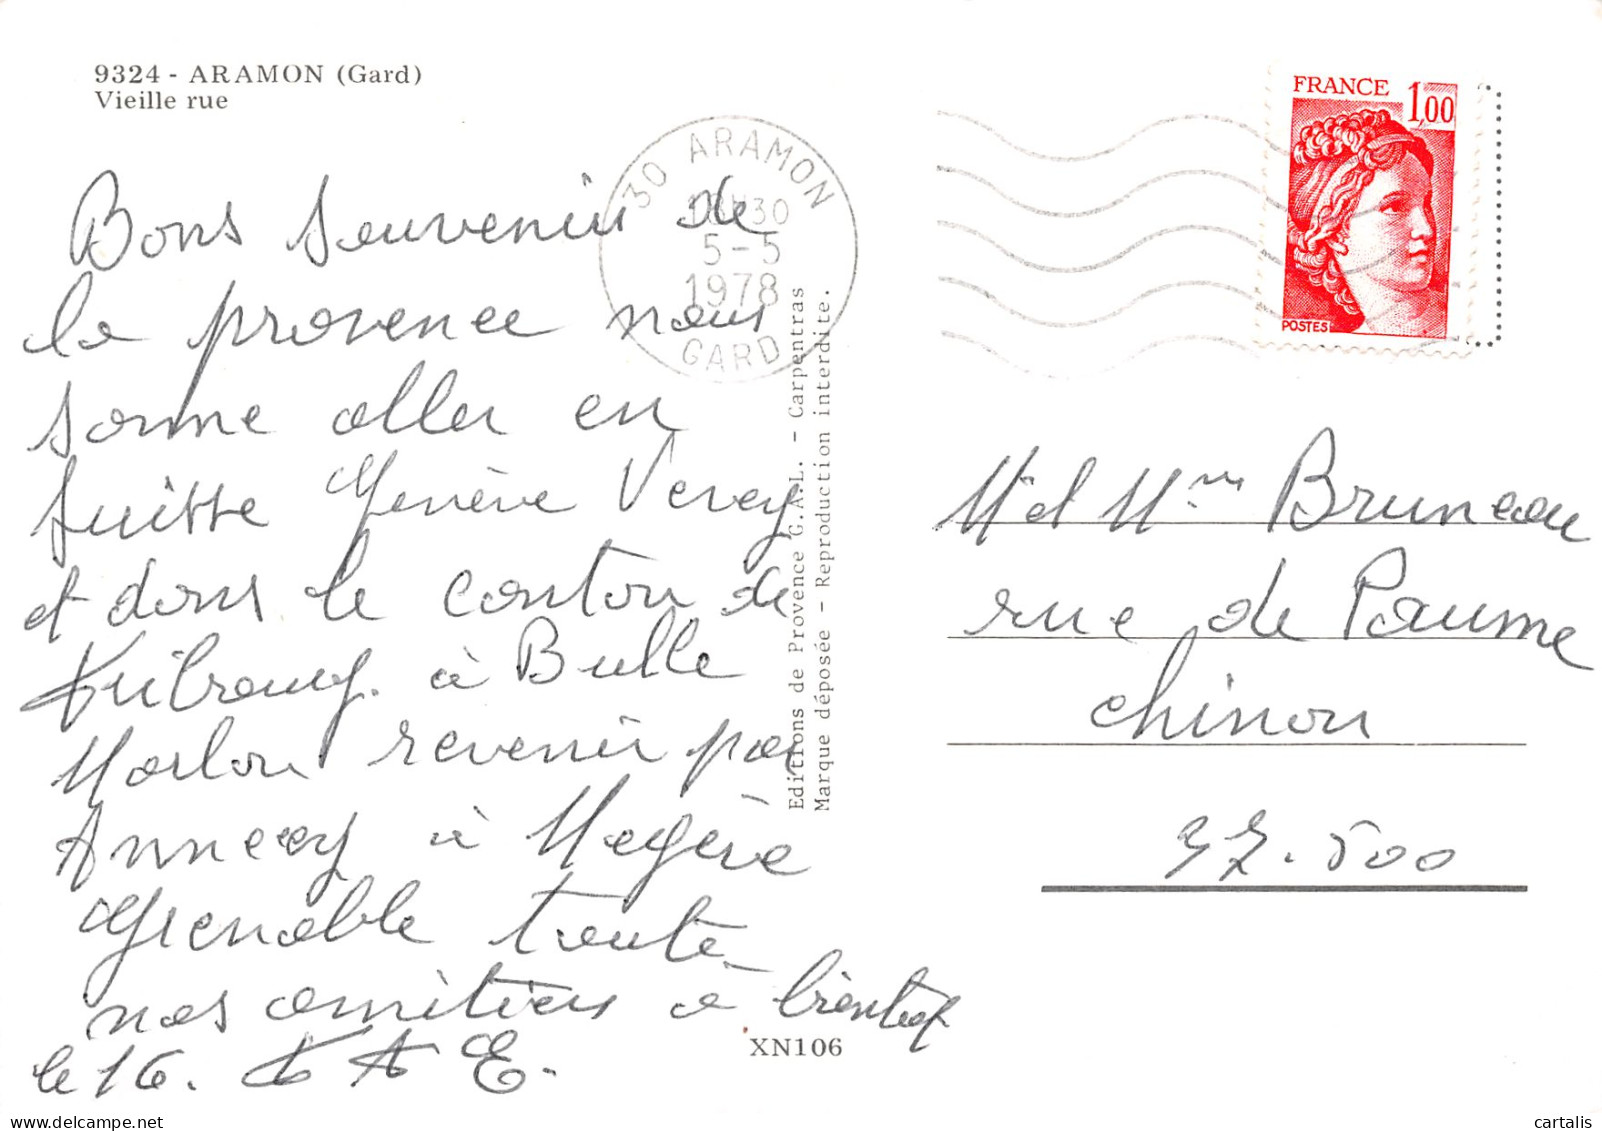 9324 - ARAMON (Gard)
Vieille rue
30 ARAMON
H30
5-5
1978
GARD
FRANCE
1,00
POSTES
Bons souvenir de
la provence nous
somme aller en
suisse Genève Vevey
et dans le canton de
à Bulle
revenir par
Annecy à Megève
Grenoble toute
nos amitiers a bientot
le 16. A E.
Editions de Provence G.A.L. - Carpentras
Marque déposée - Reproduction interdite.
XN106
M et Mme Bruneau
rue de Paume
chinon
37.500
delcampe.net
cartalis